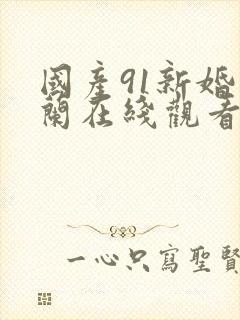 國產91新婚
蘭在綫觀看
一心只寫聖賢